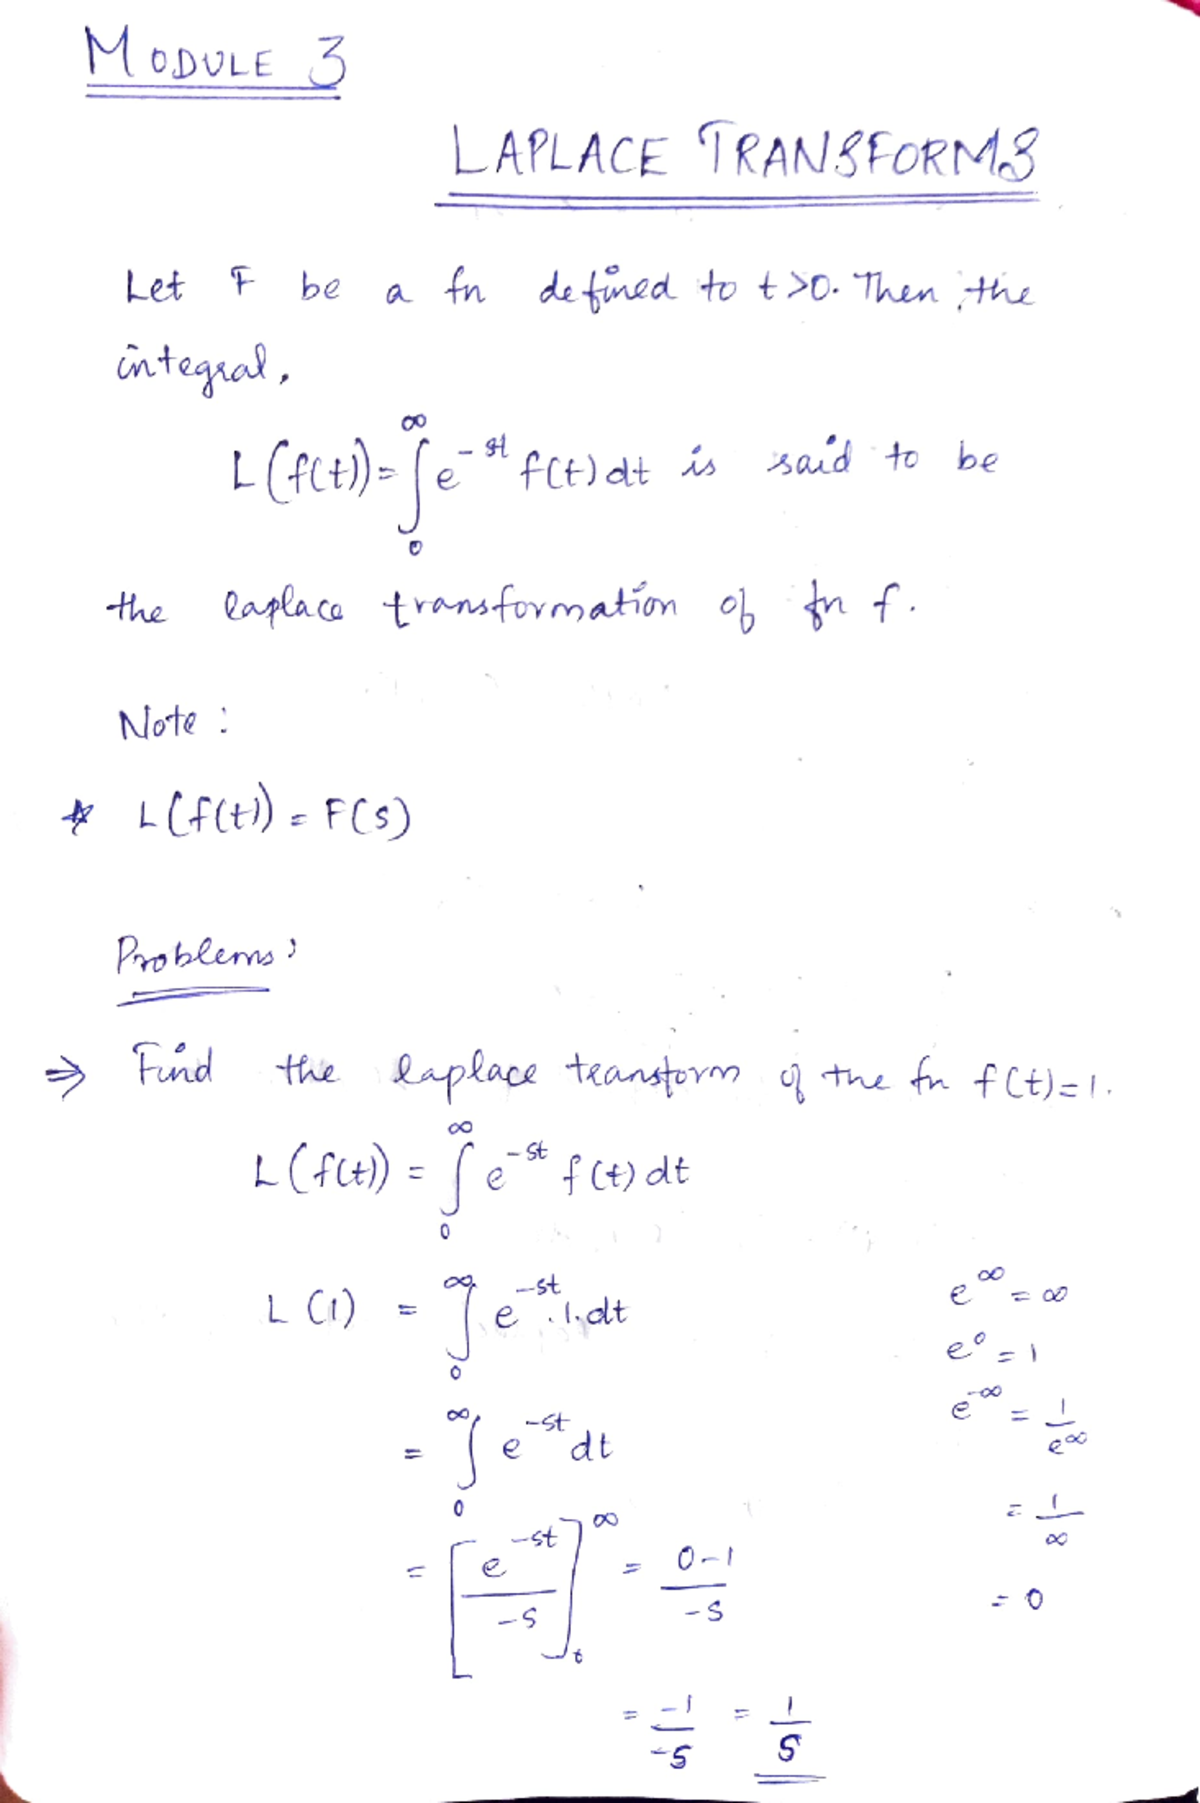 MODULE 3
LAPLACE TRANSFORMS
Let F be a fn defined to t>0. Then, the
integral,
L(f(t)) = ∫₀^∞ e^{-st} f(t) dt is said to be
the laplace transformation of fn f.
Note :
* L(f(t)) = F(s)
Problems :
⇒ Find the laplace transform of the fn f(t)=1.
L(f(t)) = ∫₀^∞ e^{-st} f(t) dt
L(1) = ∫₀^∞ e^{-st}.1.dt
= ∫₀^∞ e^{-st} dt
= [e^{-st}/-s]_t^∞ = (0-1)/-s
= -1/-s = 1/s
e^∞ = ∞
e^0 = 1
e^{-∞} = 1/e^∞
= 1/∞
= 0